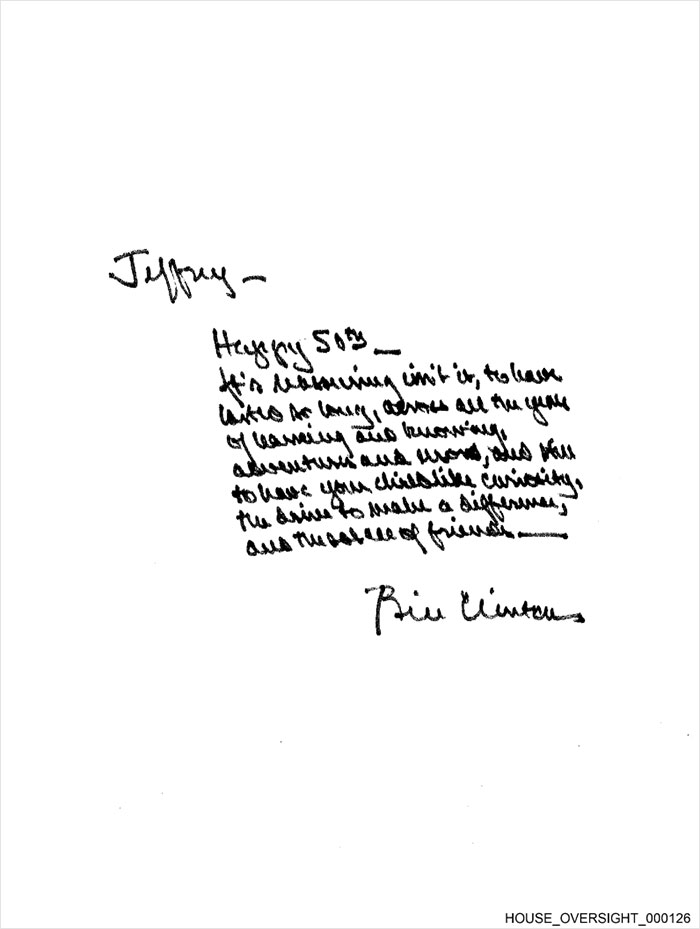 Jeffrey —
Happy 50th —
It's reassuring isn't it, to have
lasted as long, across all the years
of learning and knowing,
adventures and, and still
to have your childlike curiosity,
the drive to make a difference,
and the solace of friends. —
Bill Clinton
HOUSE_OVERSIGHT_000126